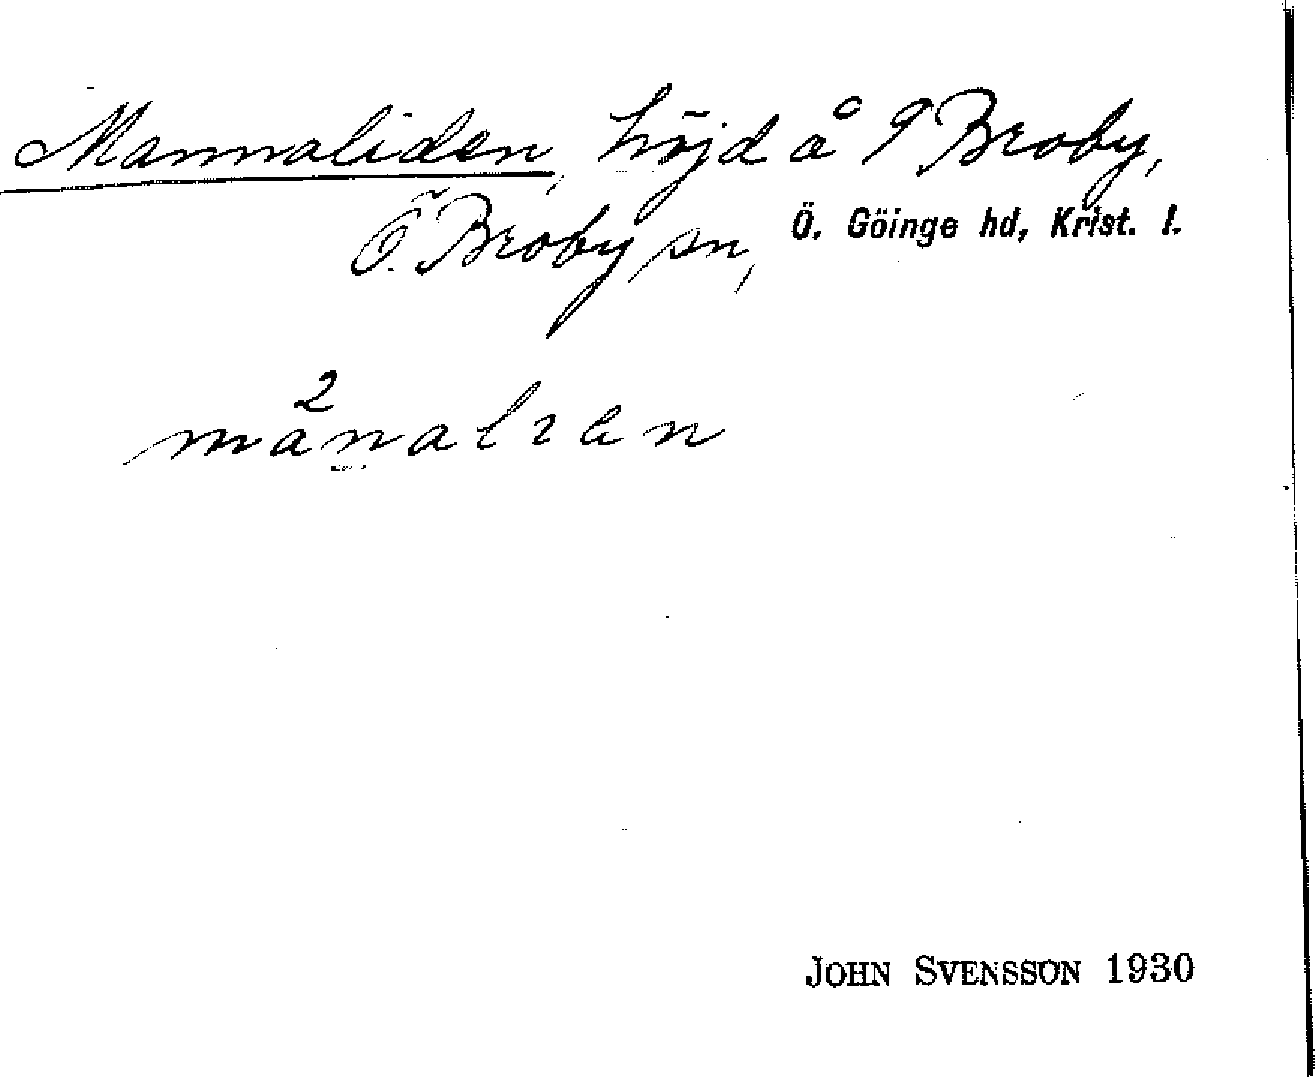 Mannaliden, höjd å 9 Broby,
Ö. Broby sn, Ö. Göinge hd, Krist. l.
2
manalıen
JOHN SVENSSON 1930